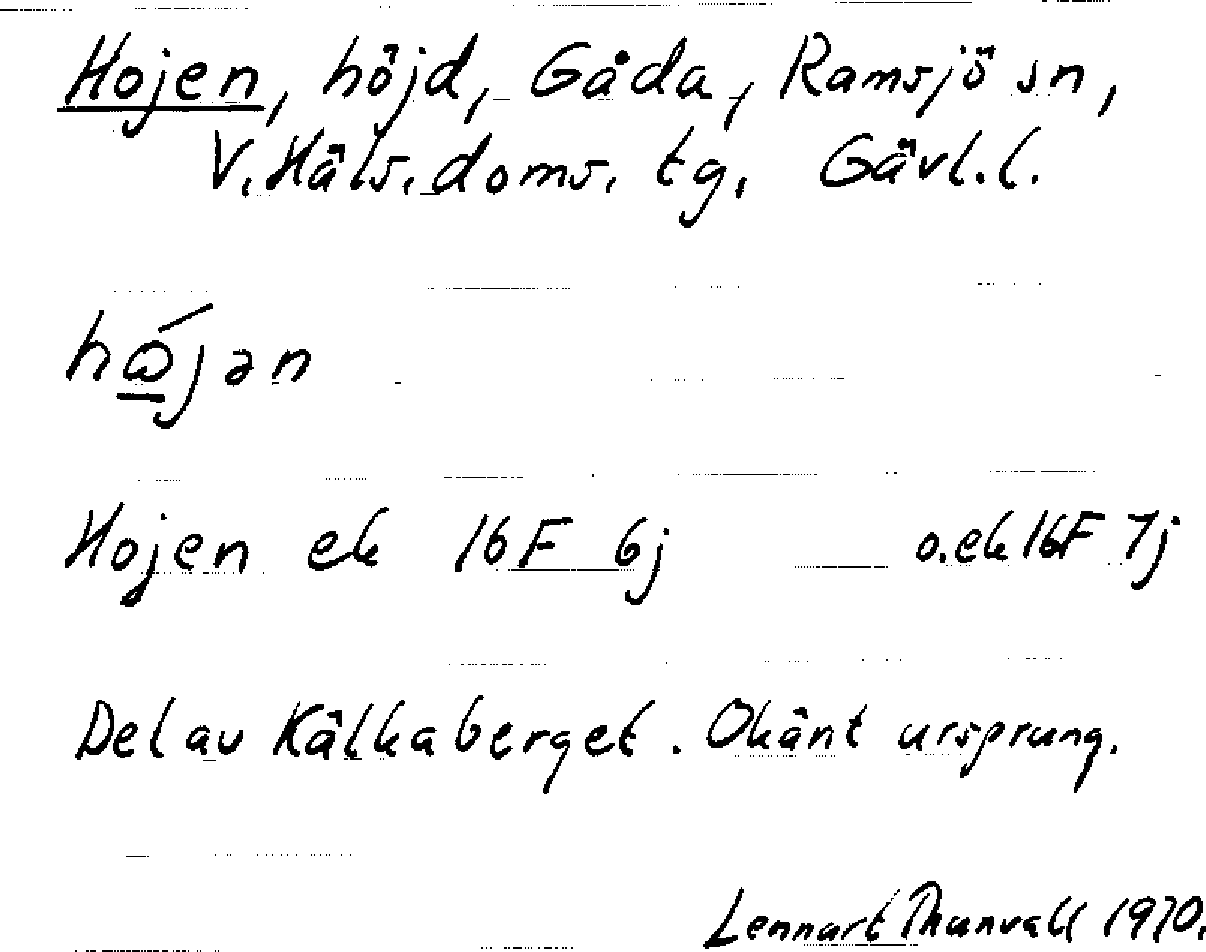 Hojen, höjd, Gåda, Ramsjö sn,
V. Häls. doms. tg. Gävl. l.
hǻjən
Hojen ek 16F 6j o. ek 16F 7j
Del av Kälkaberget. Okänt ursprung.
Lennart Thunvall 1970.